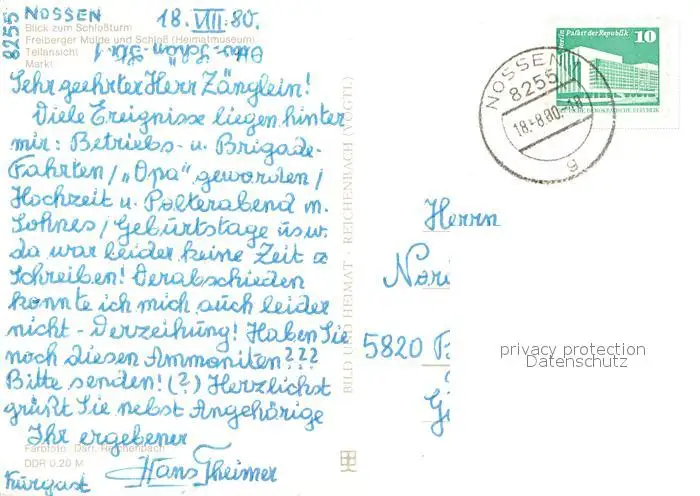 8255 NOSSEN 18. VIII. 80.
Blick zum Schloßturm
Freiberger Mulde und Schloß (Heimatmuseum)
Teilansicht
Markt
Sehr geehrter Herr Zänglein!
Viele Ereignisse liegen hinter
mir: Betriebs- u. Brigade-
Fahrten / „Opa" geworden /
Hochzeit u. Polterabend m.
Sohnes / Geburtstage usw.
da war leider keine Zeit z
Schreiben! Verabschieden
konnte ich mich auch leider
nicht - Verzeihung! Haben Sie
noch diesen Ammoniten???
Bitte senden! (?) Herzlichst
grüßt Sie nebst Angehörige
Ihr ergebener
Hans Theimer
Kurgast
Farbfoto: Darr, Reichenbach
DDR 0,20 M
BILD UND HEIMAT · REICHENBACH (VOGTL)
Berlin Palast der Republik 10
DEUTSCHE DEMOKRATISCHE REPUBLIK
NOSSEN 1
8255
18.-8.80.-18
g
Herrn
Nori
5820 B
Gi
privacy protection
Datenschutz